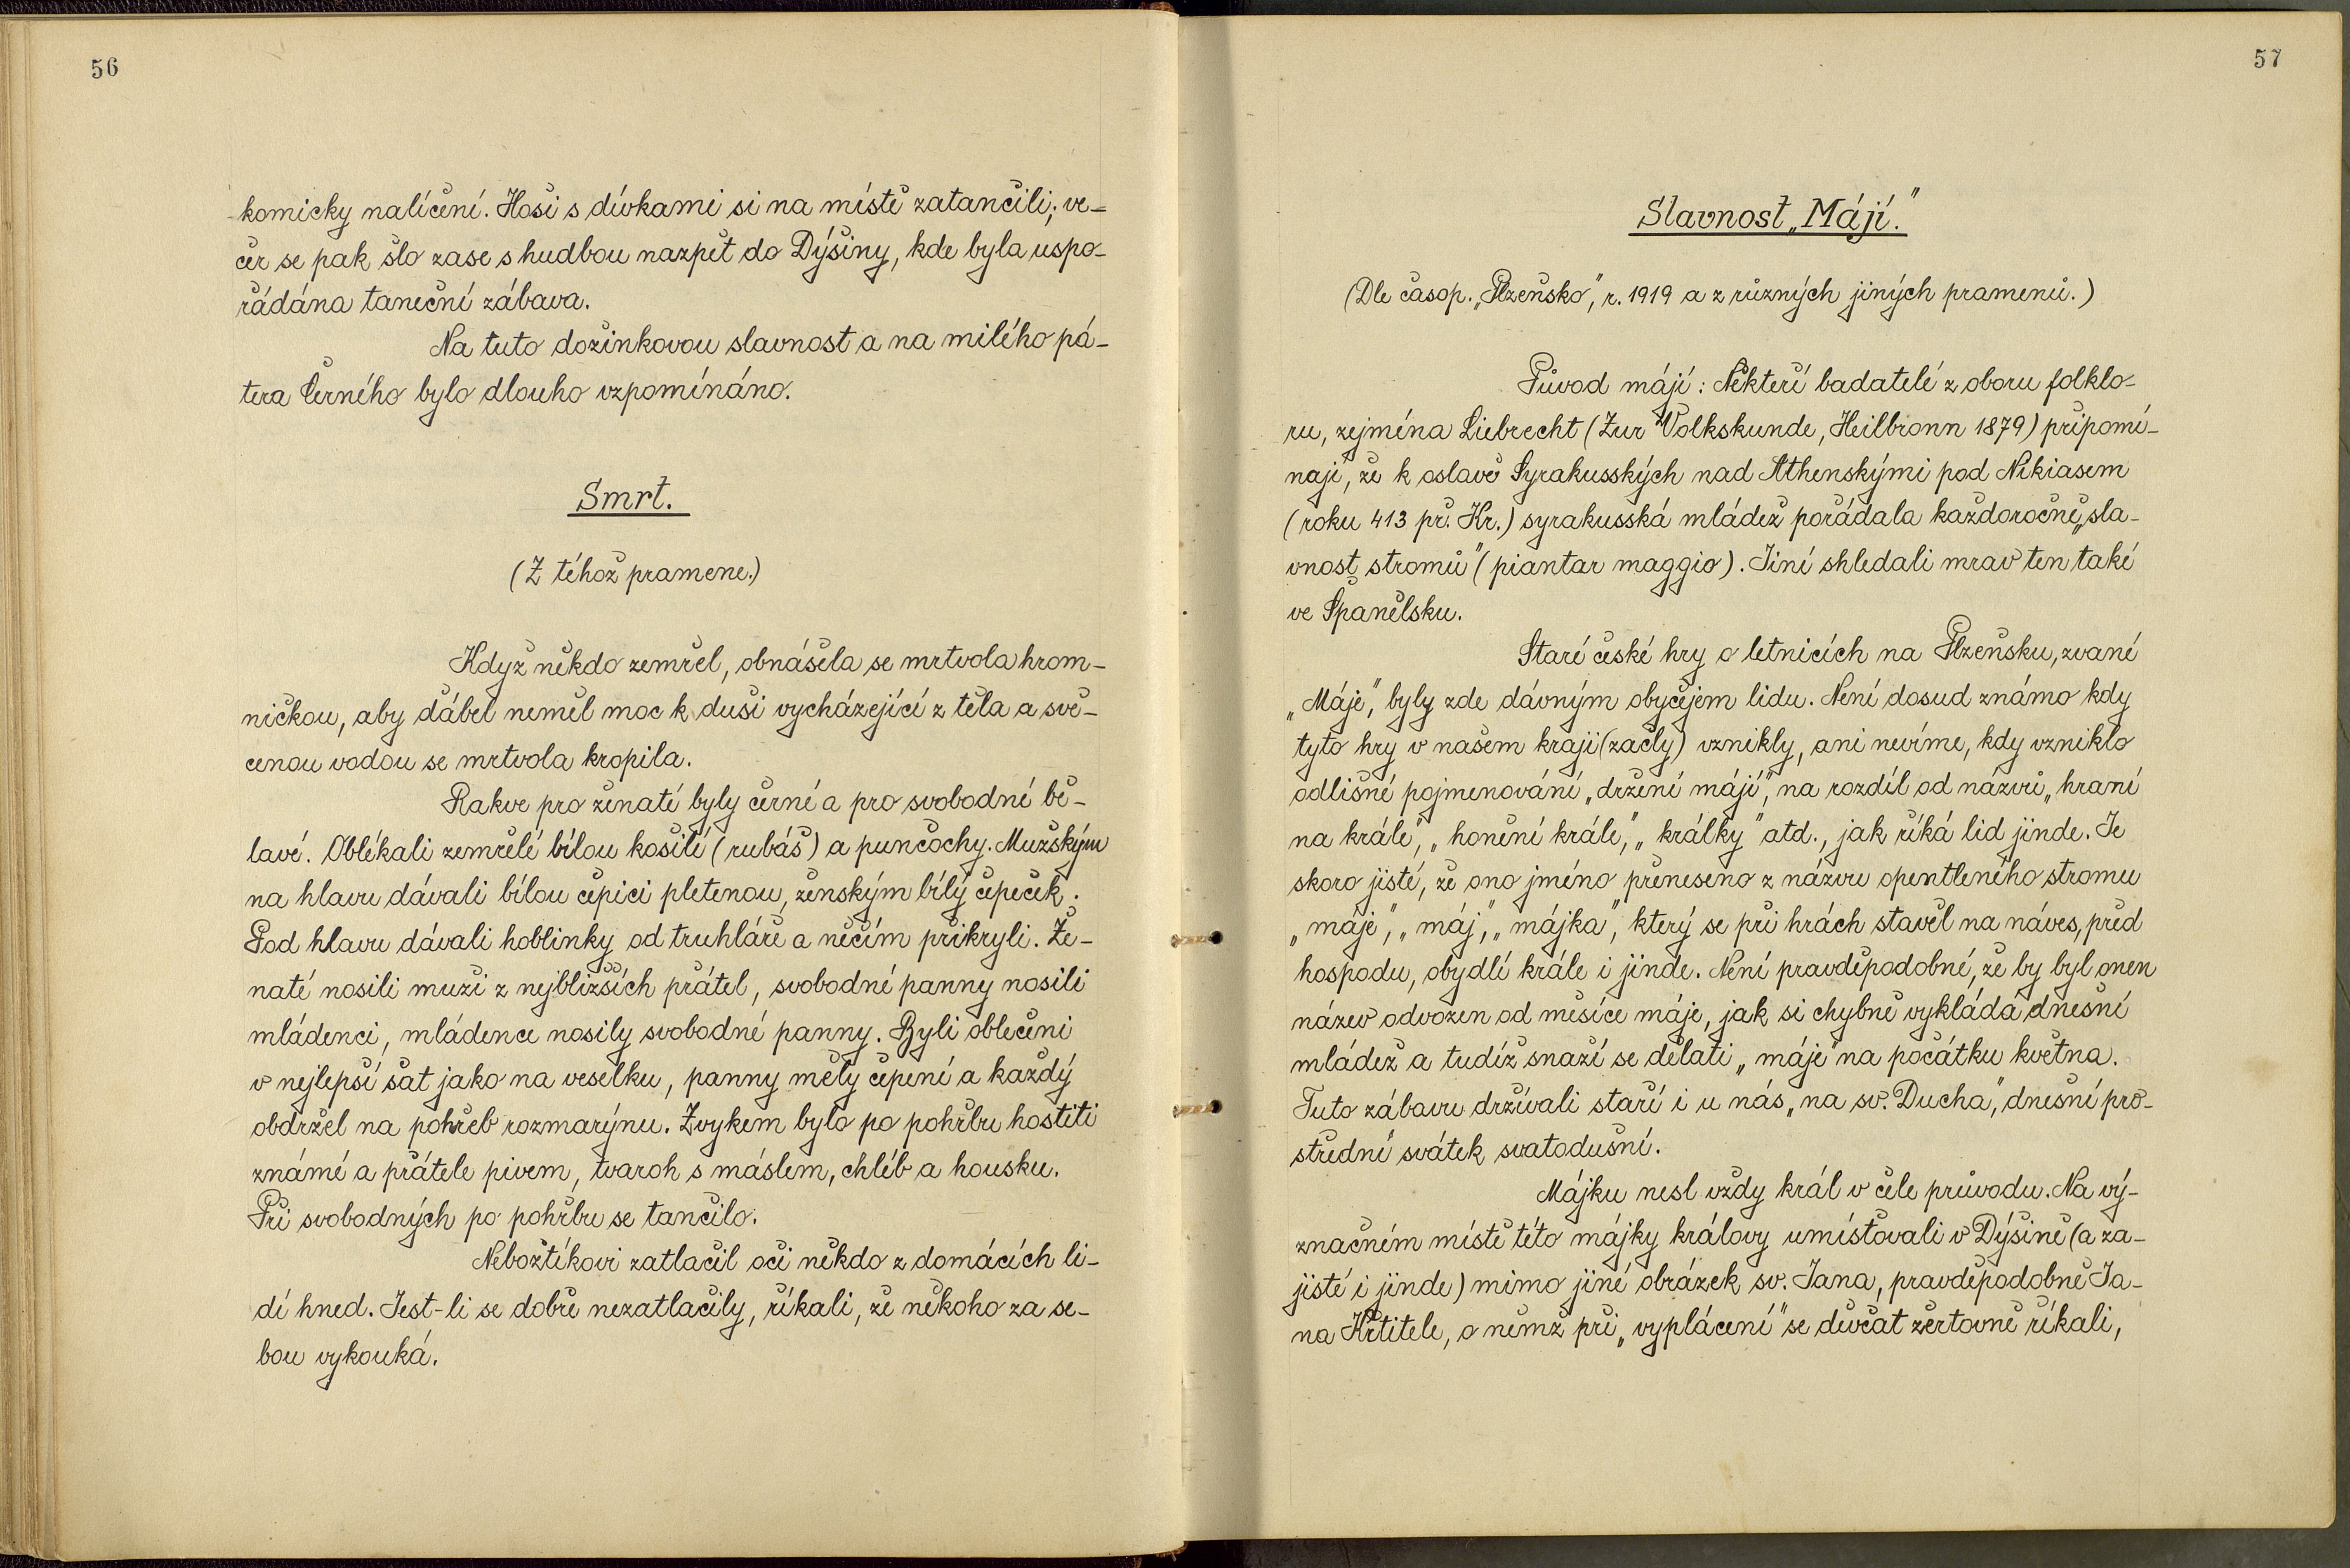 56
komicky nalíčení. Hoši s dívkami si na místě zatančili; ve-
čer se pak šlo zase s hudbou nazpět do Dýšiny, kde byla uspo-
řádána taneční zábava.
Na tuto dožinkovou slavnost a na milého pá-
tera Černého bylo dlouho vzpomínáno.
Smrt.
(Z téhož pramene.)
Když někdo zemřel, obnášela se mrtvola hrom-
ničkou, aby ďábel neměl moc k duši vycházející z těla a svě-
cenou vodou se mrtvola kropila.
Rakve pro ženaté byly černé a pro svobodné bě-
lavé. Oblékali zemřelé bílou košilí (rubáš) a punčochy. Mužským
na hlavu dávali bílou čepici pletenou, ženským bílý čepeček.
Pod hlavu dávali hoblinky od truhláře a něčím přikryli. Že-
naté nosili muži z nejbližších přátel, svobodné panny nosili
mládenci, mládence nosily svobodné panny. Byli oblečeni
v nejlepší šat jako na veselku, panny měly čepení a každý
obdržel na pohřeb rozmarýnu. Zvykem bylo po pohřbu hostiti
známé a přátele pivem, tvaroh s máslem, chléb a housku.
Při svobodných po pohřbu se tančilo.
Nebožtíkovi zatlačil oči někdo z domácích li-
dí hned. Jest-li se dobře nezatlačily, říkali, že někoho za se-
bou vykouká.
57
Slavnost „Májí."
(Dle časop. „Plzeňsko", r. 1919 a z různých jiných pramenů.)
Původ májí: Někteří badatelé z oboru folklo-
ru, zejména Liebrecht (Zur Volkskunde, Heilbronn 1879) připomí-
nají, že k oslavě Syrakusských nad Athenskými pod Nikiasem
(roku 413 př. Kr.) syrakusská mládež pořádala každoročně „sla-
vnost stromů" (piantar maggio). Jiní shledali mrav ten také
ve Španělsku.
Staré české hry o letnicích na Plzeňsku, zvané
„Máje", byly zde dávným obyčejem lidu. Není dosud známo kdy
tyto hry v našem kraji (začly) vznikly, ani nevíme, kdy vzniklo
odlišné pojmenování „držení májí", na rozdíl od názvů „hraní
na krále", „honění krále", „králky" atd., jak říká lid jinde. Je
skoro jisté, že ono jméno přeneseno z názvu opentleného stromu
„máje", „máj", „májka", který se při hrách stavěl na náves, před
hospodu, obydlí krále i jinde. Není pravděpodobné, že by byl onen
název odvozen od měsíce máje, jak si chybně vykládá dnešní
mládež a tudíž snaží se dělati „máje" na počátku května.
Tuto zábavu držívali staří i u nás „na sv. Ducha", dnešní pro-
střední svátek svatodušní.
Májku nesl vždy král v čele průvodu. Na vý-
značném místě této májky královy umísťovali v Dýšině (a za-
jisté i jinde) mimo jiné obrázek sv. Jana, pravděpodobně Ja-
na Křtitele, o němž při „vyplácení" se děvčat žertovně říkali,